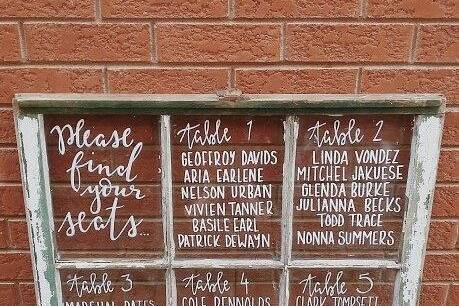 Please
find
your
seats...
table 1
GEOFFROY DAVIDS
ARIA EARLENE
NELSON URBAN
VIVIEN TANNER
BASILE EARL
PATRICK DEWAYN
table 2
LINDA VONDEZ
MITCHEL JAKUESE
GLENDA BURKE
JULIANNA BECKS
TODD TRACE
NONNA SUMMERS
table 3
MARSHAL DATES
table 4
COLE REYNOLDS
table 5
CLARK TOMPSETT